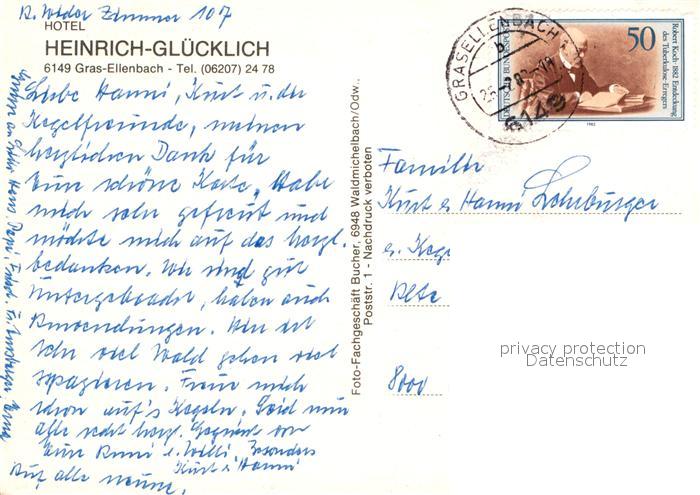 Zimmer 107
HOTEL
HEINRICH-GLÜCKLICH
6149 Gras-Ellenbach - Tel. (06207) 24 78
Liebe Hanni, Kurt u. die
Kegelfreunde, meinen
herzlichen Dank für
Eure schöne Karte. Habe
mich sehr gefreut und
möchte mich auf das herzl.
bedanken. Wir sind gut
untergebracht, haben auch
Anwendungen. Hier ist
sehr viel Wald gehen viel
spazieren. Freue mich
schon auf's Kegeln. Seid nun
alle recht herzl. Gegrüßt von
Eure u. Willi, Besonders
Kurt u. Hanni
Auf alle neune.
Foto-Fachgeschäft Bucher, 6948 Waldmichelbach/Odw.,
Poststr. 1 - Nachdruck verboten
GRASELLENBACH
b
6149
50
Robert Koch 1882 Entdeckung
des Tuberkulose-Erregers
DEUTSCHE BUNDESPOST
1982
Familie
Kurt u. Hanni Lohrburger
8000
privacy protection
Datenschutz